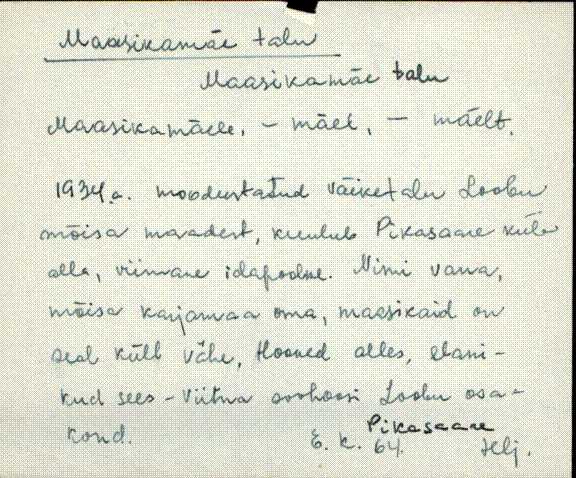 Maasikamäe talu
Maasikamäe talu
Maasikamäele, - mäel, - mäelt.
1934.a. moodustatud väiketalu Loobu
mõisa maadest, kuulub Pikasaare küla
alla, viimane idapoolne. Nimi vana,
mõisa karjamaa oma, maasikaid on
seal küll vähe, Hooned alles, elani-
kud sees - Viitna sovhoosi Loobu osa-
kond.
Pikasaare
E. K. 64. Helj.